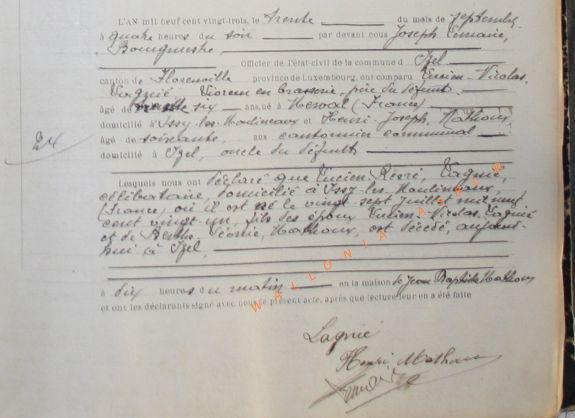 L'AN mil neuf cent vingt-trois, le trente du mois de septembre
à quatre heures du soir par devant nous Joseph Lemaire,
Bourgmestre
Officier de l'état-civil de la commune d' Izel
canton de Florenville province de Luxembourg, ont comparu Lucien-Nicolas
Lagnié en brasserie, père du défunt
âgé de trente six ans, né à (France)
domicilié à Issy-les-Moulineaux et Henri-Joseph, Mathoux
24
âgé de soixante, ans cantonnier communal
domicilié à Izel, oncle du défunt
Lesquels nous ont déclaré que Lucien René, Lagnié,
célibataire, domicilié à Issy-les-Moulineaux,
(France) où il est né le vingt-sept juillet mil neuf
cent vingt-un, fils des époux Lucien-Nicolas, Lagnié
et de Berthe Léonie, Mathoux, est décédé, aujourd'
hui à Izel.
à dix heures du matin en la maison de Jean Baptiste Mathoux
et ont les déclarants signé avec nous le présent acte, après que lecture leur en a été faite
Lagnié
Henri Mathoux